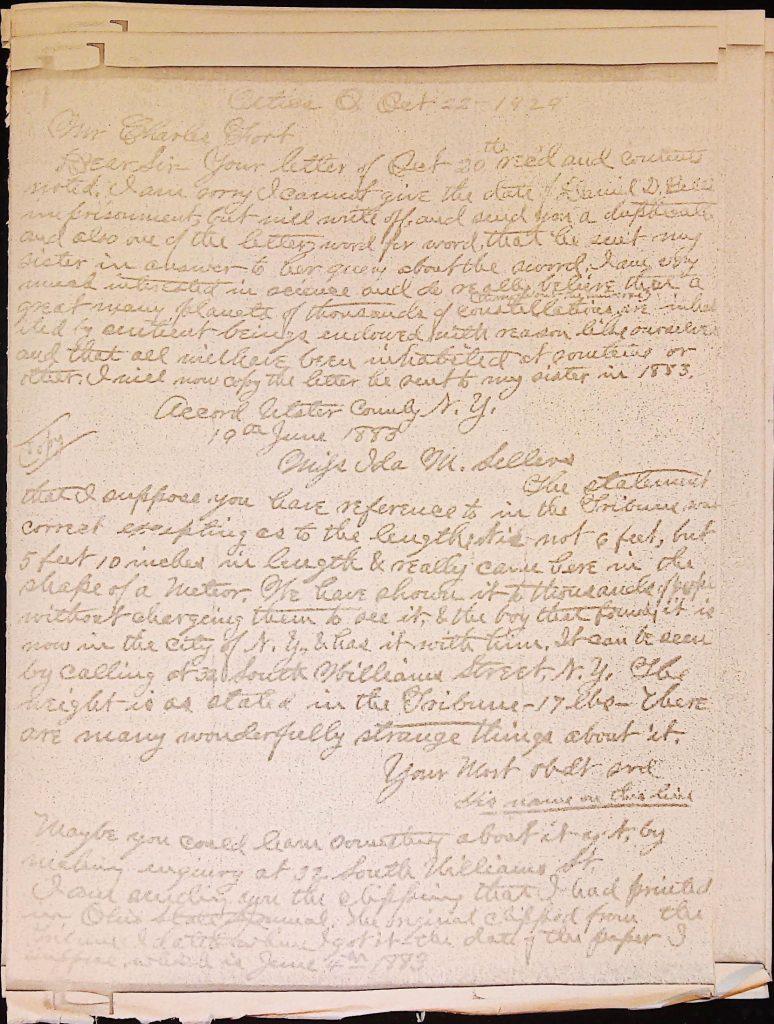 Attica O Oct 22 - 1929
Mr Charles Fort
Dear Sir - Your letter of Oct 20th rec'd and contents
noted. I am sorry I cannot give the date of Daniel D. Bell
imprisonment, but will write off, and send you a duplicate
and also one of the letter, word for word, that he sent my
sister in answer to her query about the sword. I am very
much interested in science and do really believe that a
great many planets of thousands of constellations are inhab
ited by sentient beings endowed with reason like ourselves
and that all will have been inhabited at sometime or
other. I will now copy the letter he sent to my sister in 1883.
Accord Ulster County N. Y.
19th June 1883
Copy
Miss Ida M. Sellers
The statement
that I suppose you have reference to in the Tribune was
correct excepting as to the length, it is not 6 feet, but
5 feet 10 inches in length & really came here in the
shape of a Meteor. We have shown it to thousands of people
without charging them to see it, & the boy that found it is
now in the city of N. Y., & has it with him. It can be seen
by calling at 32 South Williams Street, N. Y. The
weight is as stated in the Tribune - 17 lbs - There
are many wonderfully strange things about it.
Your Most obdt srvt
His name on this line
Maybe you could learn something about it by
making enquiry at 32 South Williams St.
I am sending you the clipping that I had printed
in Ohio State Journal. The original clipped from the
Tribune I when I got it the date of the paper I
which is June 4th 1883